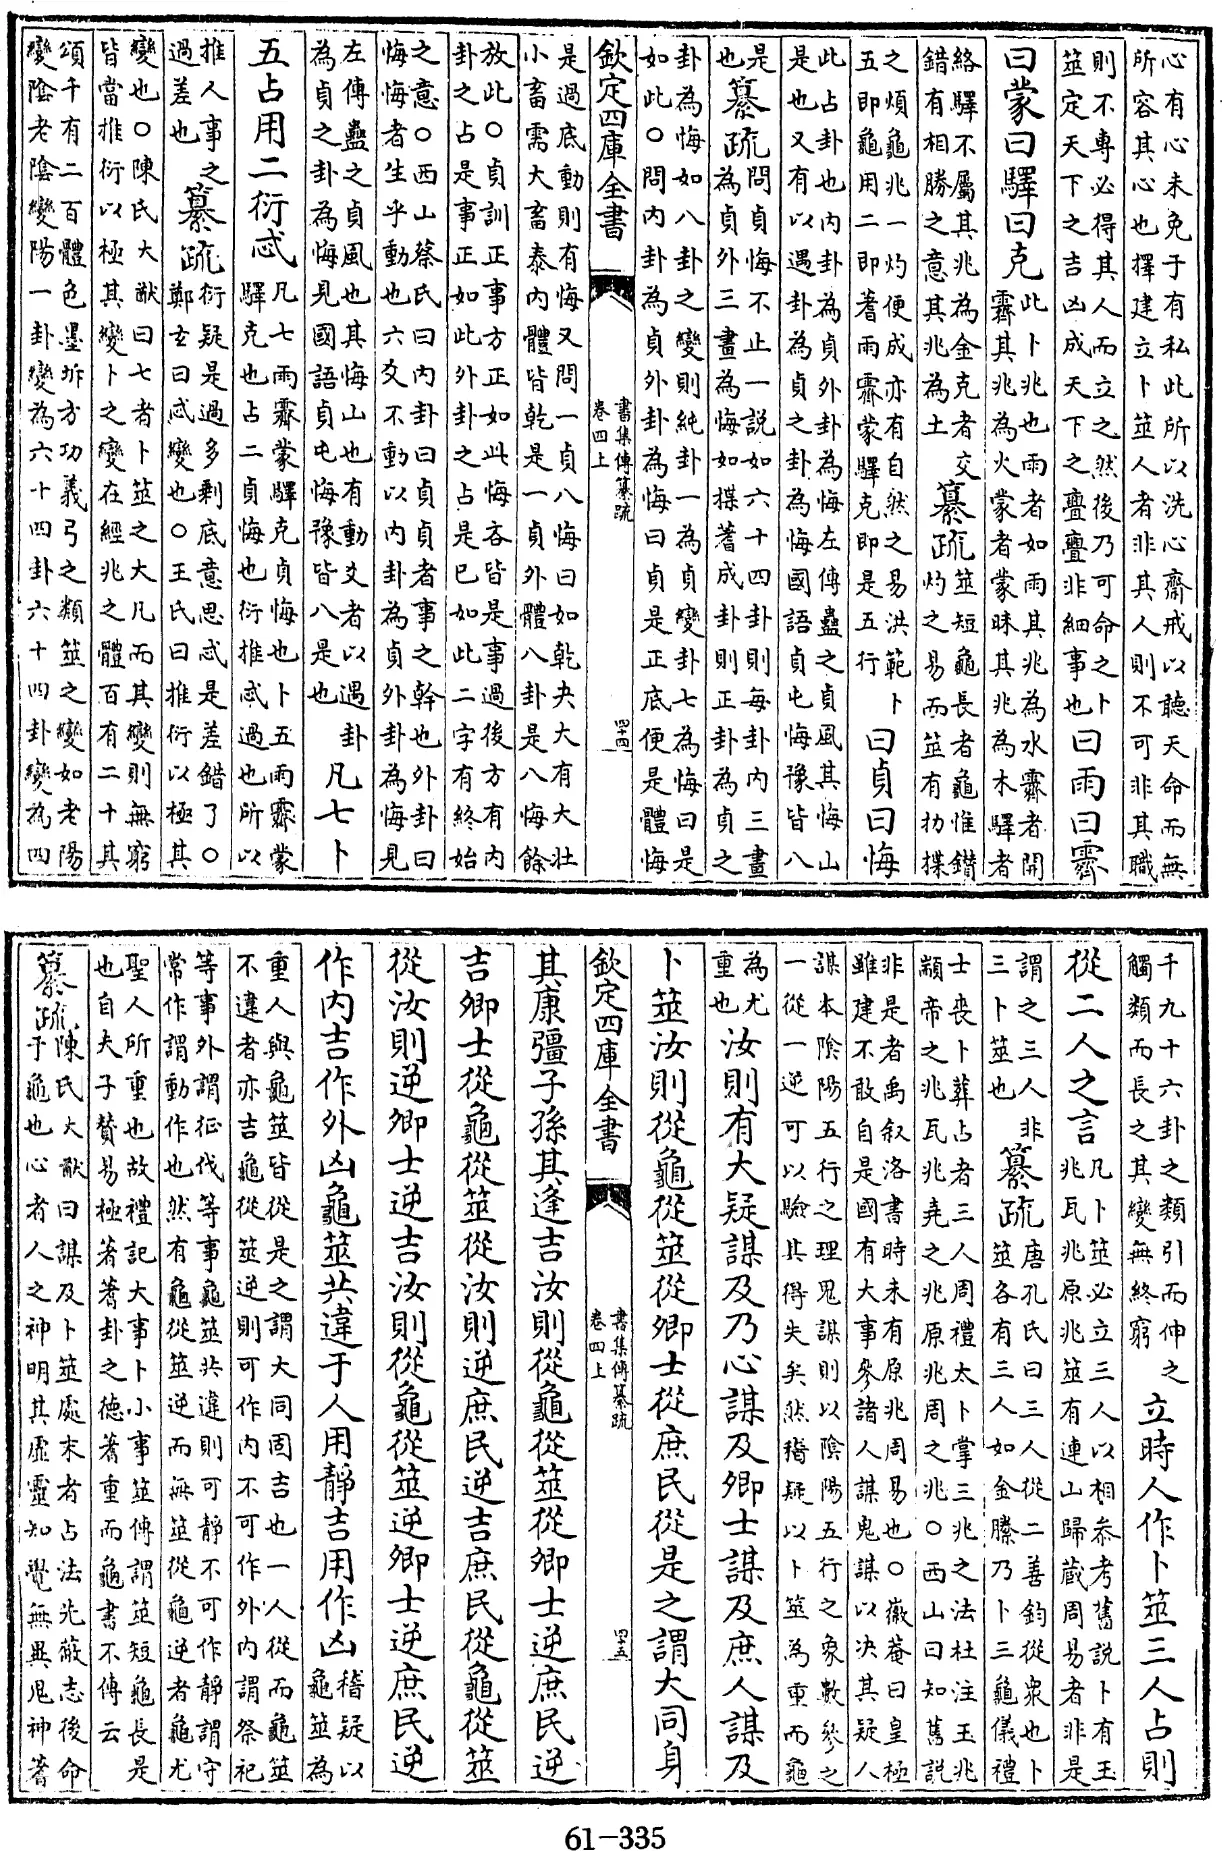 心有心未免于有私此所以洗心齋戒以聽天命而無
所容其心也擇建立卜筮人者非其人則不可非其職
則不專必得其人而立之然後乃可命之卜
筮定天下之吉凶成天下之亹亹非細事也
曰雨曰霽
曰蒙曰驛曰克
此卜兆也雨者如雨其兆為水霽者開
霽其兆為火蒙者蒙昧其兆為木驛者
絡驛不屬其兆為金克者交
錯有相勝之意其兆為土
纂疏
筮短龜長者龜惟鑚
灼之易而筮有扐揲
之煩龜兆一灼便成亦有自然之易洪範卜
五即龜用二即蓍雨霽蒙驛克即是五行
曰貞曰悔
此占卦也内卦為貞外卦為悔左傳蠱之貞風其悔山
是也又有以遇卦為貞之卦為悔國語貞屯悔豫皆八
是
也
纂疏
問貞悔不止一説如六十四卦則每卦内三畫
為貞外三畫為悔如揲蓍成卦則正卦為貞之
卦為悔如八卦之變則純卦一為貞變卦七為悔曰是
如此○問内卦為貞外卦為悔曰貞是正底便是體悔
欽定四庫全書
書集傳纂疏
卷四上
四十四
是過底動則有悔又問一貞八悔曰如乾夬大有大壯
小畜需大畜泰内體皆乾是一貞外體八卦是八悔餘
放此○貞訓正事方正如此悔吝皆是事過後方有内
卦之占是事正如此外卦之占是已如此二字有終始
之意○西山蔡氏曰内卦曰貞貞者事之幹也外卦曰
悔悔者生乎動也六爻不動以内卦為貞外卦為悔見
左傳蠱之貞風也其悔山也有動爻者以遇卦
為貞之卦為悔見國語貞屯悔豫皆八是也
凡七卜
五占用二衍忒
凡七雨霽蒙驛克貞悔也卜五雨霽蒙
驛克也占二貞悔也衍推忒過也所以
推人事之
過差也
纂疏
衍疑是過多剩底意思忒是差錯了○
鄭玄曰忒變也○王氏曰推衍以極其
變也○陳氏大猷曰七者卜筮之大凡而其變則無窮
皆當推衍以極其變卜之變在經兆之體百有二十其
頌千有二百體色墨坼方功義弓之類筮之變如老陽
變陰老陰變陽一卦變為六十四卦六十四卦變為四
千九十六卦之類引而伸之
觸類而長之其變無終窮
立時人作卜筮三人占則
從二人之言
凡卜筮必立三人以相參考舊説卜有玉
兆瓦兆原兆筮有連山歸藏周易者非是
謂之三人非
三卜筮也
纂疏
唐孔氏曰三人從二善鈞從衆也卜
筮各有三人如金縢乃卜三龜儀禮
士喪卜葬占者三人周禮太卜掌三兆之法杜注玉兆
顓帝之兆瓦兆堯之兆原兆周之兆○西山曰知舊説
非是者禹叙洛書時未有原兆周易也○徽菴曰皇極
雖建不敢自是國有大事參諸人謀鬼謀以决其疑人
謀本陰陽五行之理鬼謀則以陰陽五行之象數參之
一從一逆可以驗其得失矣然稽疑以卜筮為重而龜
為尤
重也
汝則有大疑謀及乃心謀及卿士謀及庶人謀及
卜筮汝則從龜從筮從卿士從庶民從是之謂大同身
欽定四庫全書
書集傳纂疏
卷四上
四十五
其康彊子孫其逢吉汝則從龜從筮從卿士逆庶民逆
吉卿士從龜從筮從汝則逆庶民逆吉庶民從龜從筮
從汝則逆卿士逆吉汝則從龜從筮逆卿士逆庶民逆
作内吉作外凶龜筮共違于人用靜吉用作凶
稽疑以
龜筮為
重人與龜筮皆從是之謂大同固吉也一人從而龜筮
不違者亦吉龜從筮逆則可作内不可作外内謂祭祀
等事外謂征伐等事龜筮共違則可靜不可作靜謂守
常作謂動作也然有龜從筮逆而無筮從龜逆者龜尤
聖人所重也故禮記大事卜小事筮傳謂筮短龜長是
也自夫子贊易極著蓍卦之德蓍重而龜書不傳云
纂疏
陳氏大猷曰謀及卜筮處末者占法先蔽志後命
于龜也心者人之神明其虛靈知覺無異鬼神蓍
61-335